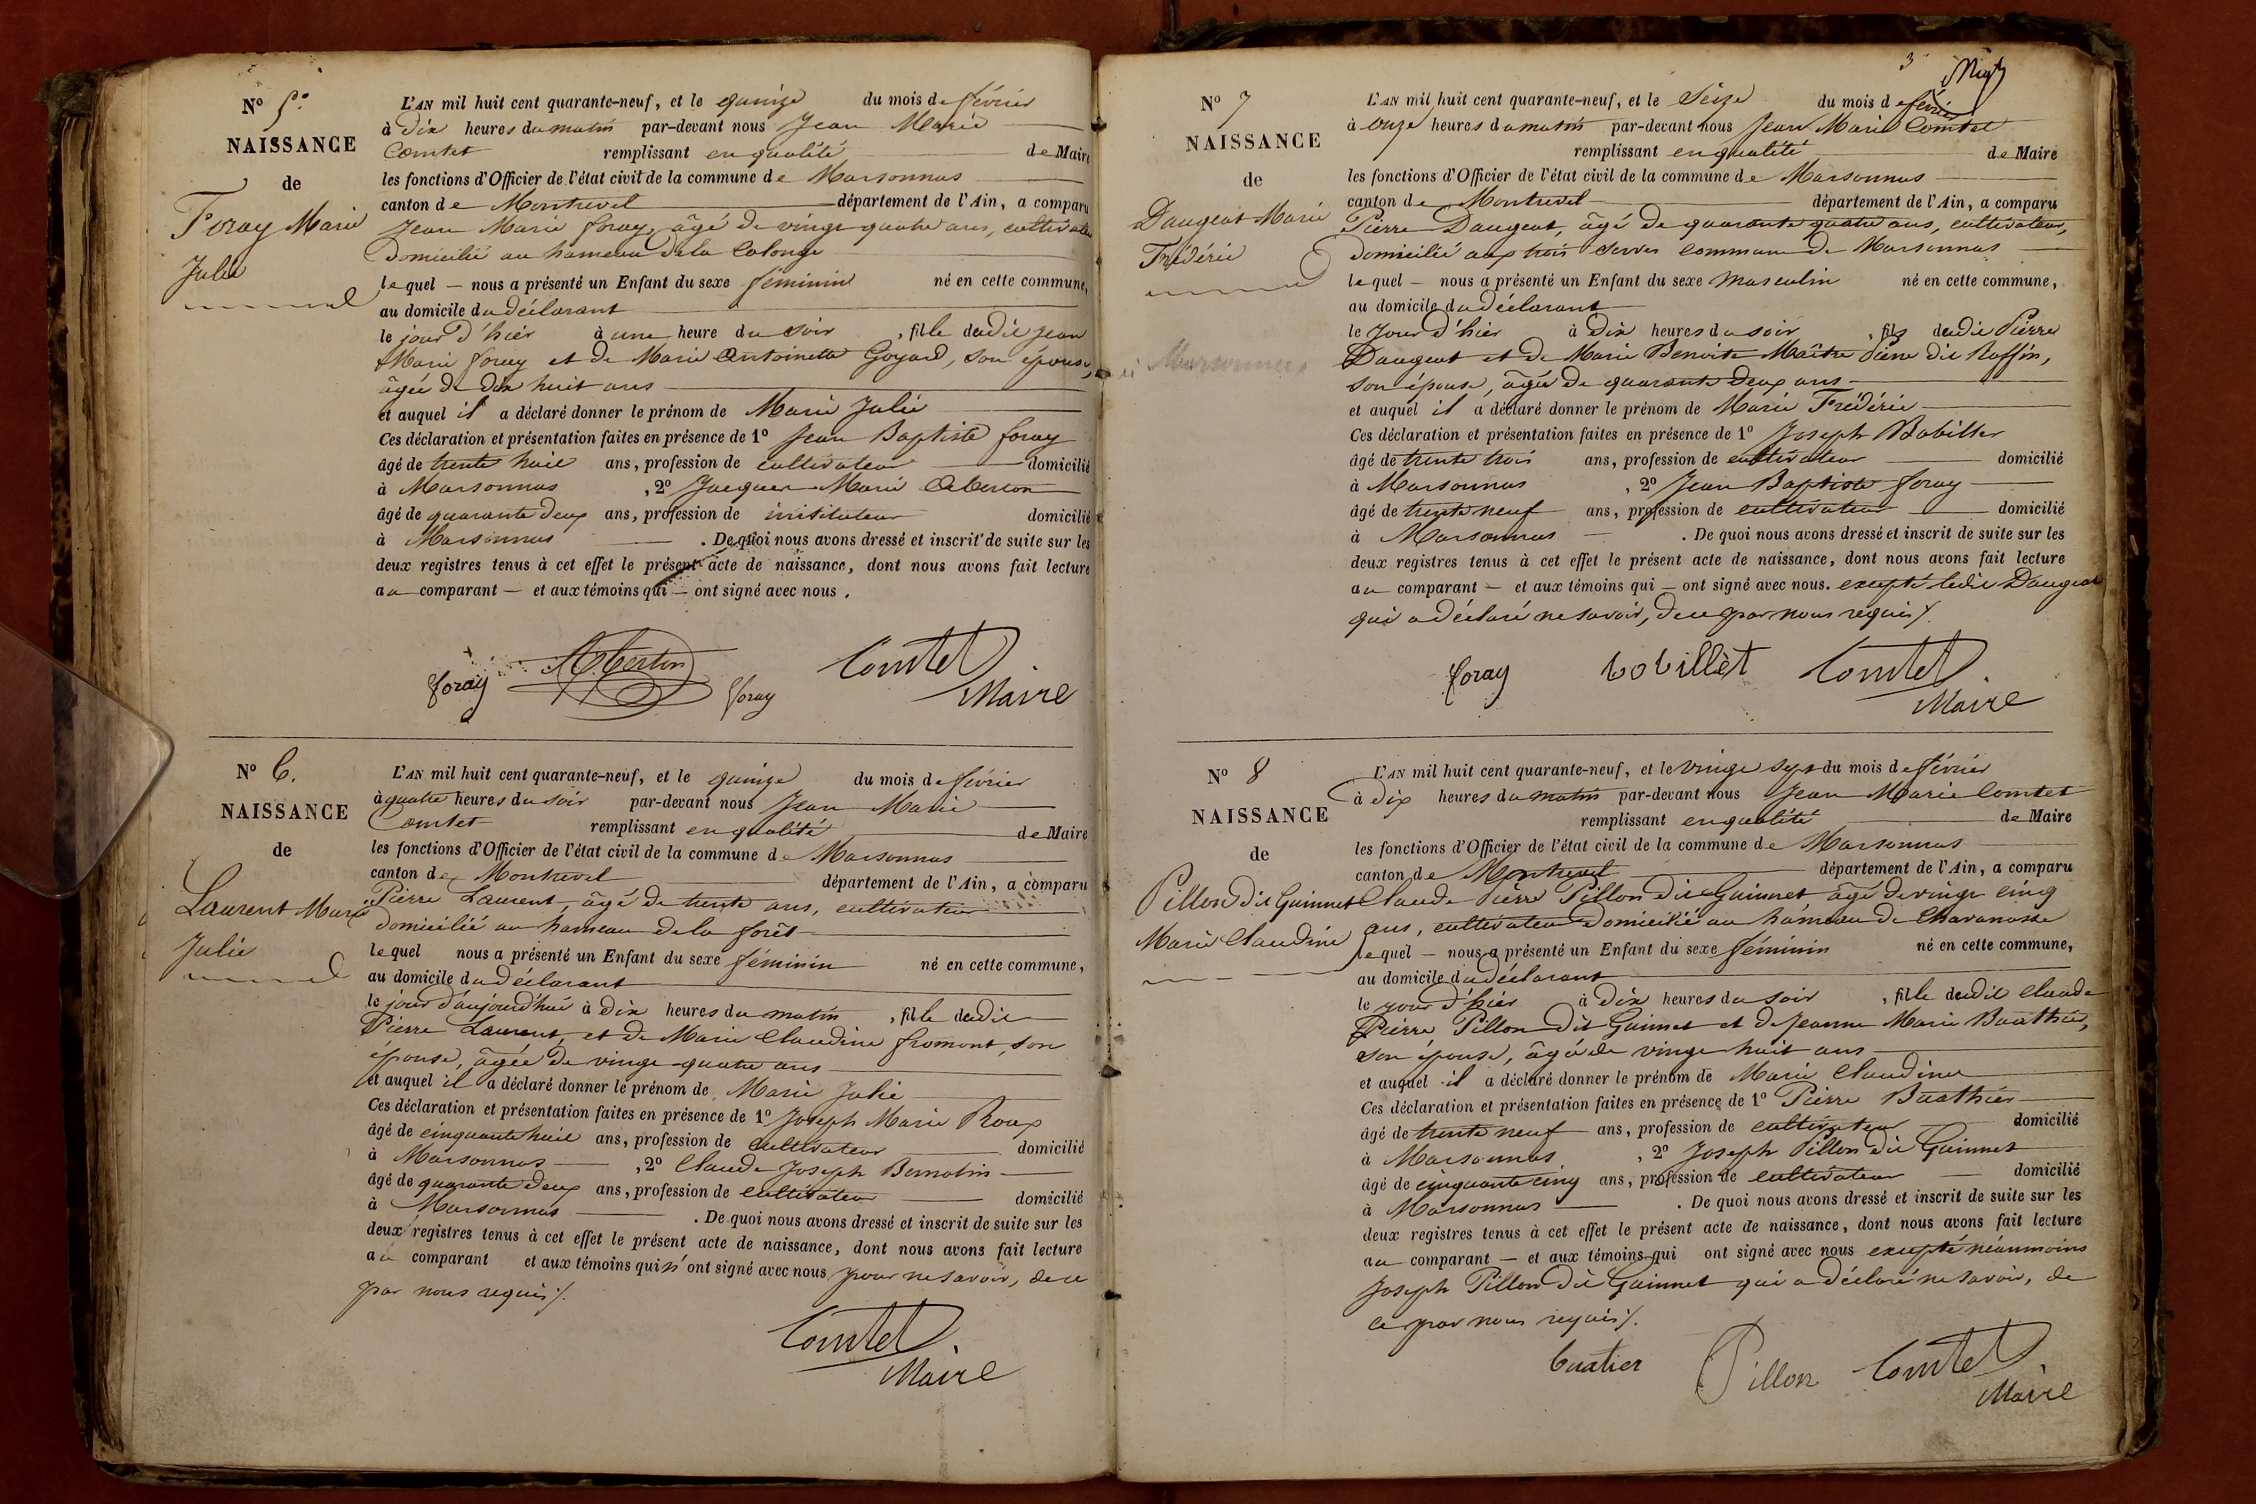 N° 5.
NAISSANCE
de
Foray Marie
Julie
L'AN mil huit cent quarante-neuf, et le quinze du mois de février
à Dix heures du matin par-devant nous Jean Marie
Comtet remplissant en qualité de Maire
les fonctions d'Officier de l'état civil de la commune de Marsonnas
canton de Montrevel département de l'Ain, a comparu
Jean Marie foray, âgé de vingt quatre ans, cultivateur
domicilié au hameau de la Calonge
lequel — nous a présenté un Enfant du sexe féminin né en cette commune,
au domicile du déclarant
le jour d'hier à une heure du soir, fille dudit Jean
Marie foray et de Marie Antoinette Goyard, son épouse,
âgée de dix huit ans
et auquel il a déclaré donner le prénom de Marie Julie
Ces déclaration et présentation faites en présence de 1° Jean Baptiste foray
âgé de trente huit ans, profession de cultivateur domicilié
à Marsonnas, 2° Jacques Marie
âgé de quarante deux ans, profession de instituteur domicilié
à Marsonnas. De quoi nous avons dressé et inscrit de suite sur les
deux registres tenus à cet effet le présent acte de naissance, dont nous avons fait lecture
au comparant — et aux témoins qui — ont signé avec nous.
foray foray Comtet
Maire
N° 6.
NAISSANCE
de
Laurent Marie
Julie
L'AN mil huit cent quarante-neuf, et le quinze du mois de février
à quatre heures du soir par-devant nous Jean Marie
Comtet remplissant en qualité de Maire
les fonctions d'Officier de l'état civil de la commune de Marsonnas
canton de Montrevel département de l'Ain, a comparu
Pierre Laurent, âgé de trente ans, cultivateur
domicilié au hameau de la forêt
lequel nous a présenté un Enfant du sexe féminin né en cette commune,
au domicile du déclarant
le jour d'aujourd'hui à dix heures du matin, fille dudit
Pierre Laurent, et de Marie Claudine fromont, son
épouse, âgée de vingt quatre ans
et auquel il a déclaré donner le prénom de Marie Julie
Ces déclaration et présentation faites en présence de 1° Joseph Marie Roux
âgé de cinquante huit ans, profession de cultivateur domicilié
à Marsonnas, 2° Claude Joseph
âgé de quarante deux ans, profession de cultivateur domicilié
à Marsonnas. De quoi nous avons dressé et inscrit de suite sur les
deux registres tenus à cet effet le présent acte de naissance, dont nous avons fait lecture
au comparant et aux témoins qui n'ont signé avec nous pour ne savoir, de ce
par nous requis ./.
Comtet
Maire
3
N° 7
NAISSANCE
de
Daugeat Marie
Frédéric
L'AN mil huit cent quarante-neuf, et le Seize du mois de février
à onze heures du matin par-devant nous Jean Marie Comtet
remplissant en qualité de Maire
les fonctions d'Officier de l'état civil de la commune de Marsonnas
canton de Montrevel département de l'Ain, a comparu
Pierre Daugeat, âgé de quarante quatre ans, cultivateur,
domicilié aux trois commune de Marsonnas
lequel — nous a présenté un Enfant du sexe masculin né en cette commune,
au domicile du déclarant
le jour d'hier à dix heures du soir, fils dudit Pierre
Daugeat et de Marie Benoite Maître Pierre dit Ruffin,
son épouse, âgée de quarante deux ans
et auquel il a déclaré donner le prénom de Marie Frédéric
Ces déclaration et présentation faites en présence de 1° Joseph Bobillet
âgé de trente trois ans, profession de cultivateur domicilié
à Marsonnas, 2° Jean Baptiste foray
âgé de trente neuf ans, profession de cultivateur domicilié
à Marsonnas. De quoi nous avons dressé et inscrit de suite sur les
deux registres tenus à cet effet le présent acte de naissance, dont nous avons fait lecture
au comparant — et aux témoins qui — ont signé avec nous. excepté ledit Daugeat
qui a déclaré ne savoir, de ce par nous requis ./.
foray bobillèt Comtet
Maire
N° 8
NAISSANCE
de
Pillon dit Guimet
Marie Claudine
L'AN mil huit cent quarante-neuf, et le vingt sept du mois de février
à dix heures du matin par-devant nous Jean Marie Comtet
remplissant en qualité de Maire
les fonctions d'Officier de l'état civil de la commune de Marsonnas
canton de Montrevel département de l'Ain, a comparu
Claude Pierre Pillon dit Guimet âgé de vingt cinq
ans, cultivateur domicilié au hameau de Chavanosse
lequel — nous a présenté un Enfant du sexe féminin né en cette commune,
au domicile du déclarant
le jour d'hier à dix heures du soir, fille dudit Claude
Pierre Pillon dit Guimet et de Jeanne Marie Buathier,
son épouse, âgée de vingt huit ans
et auquel il a déclaré donner le prénom de Marie Claudine
Ces déclaration et présentation faites en présence de 1° Pierre Buathier
âgé de trente neuf ans, profession de cultivateur domicilié
à Marsonnas, 2° Joseph Pillon dit Guimet
âgé de cinquante cinq ans, profession de cultivateur domicilié
à Marsonnas. De quoi nous avons dressé et inscrit de suite sur les
deux registres tenus à cet effet le présent acte de naissance, dont nous avons fait lecture
au comparant — et aux témoins qui ont signé avec nous excepté néanmoins
Joseph Pillon dit Guimet qui a déclaré ne savoir, de
ce par nous requis ./.
buatier Pillon Comtet
Maire